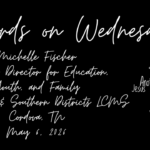 rds on Wednesd
Michelle Fischer
Director for Education,
outh, and Family
& Southern Districts LCMS
Cordova, TN
May 6, 2026
Jesus